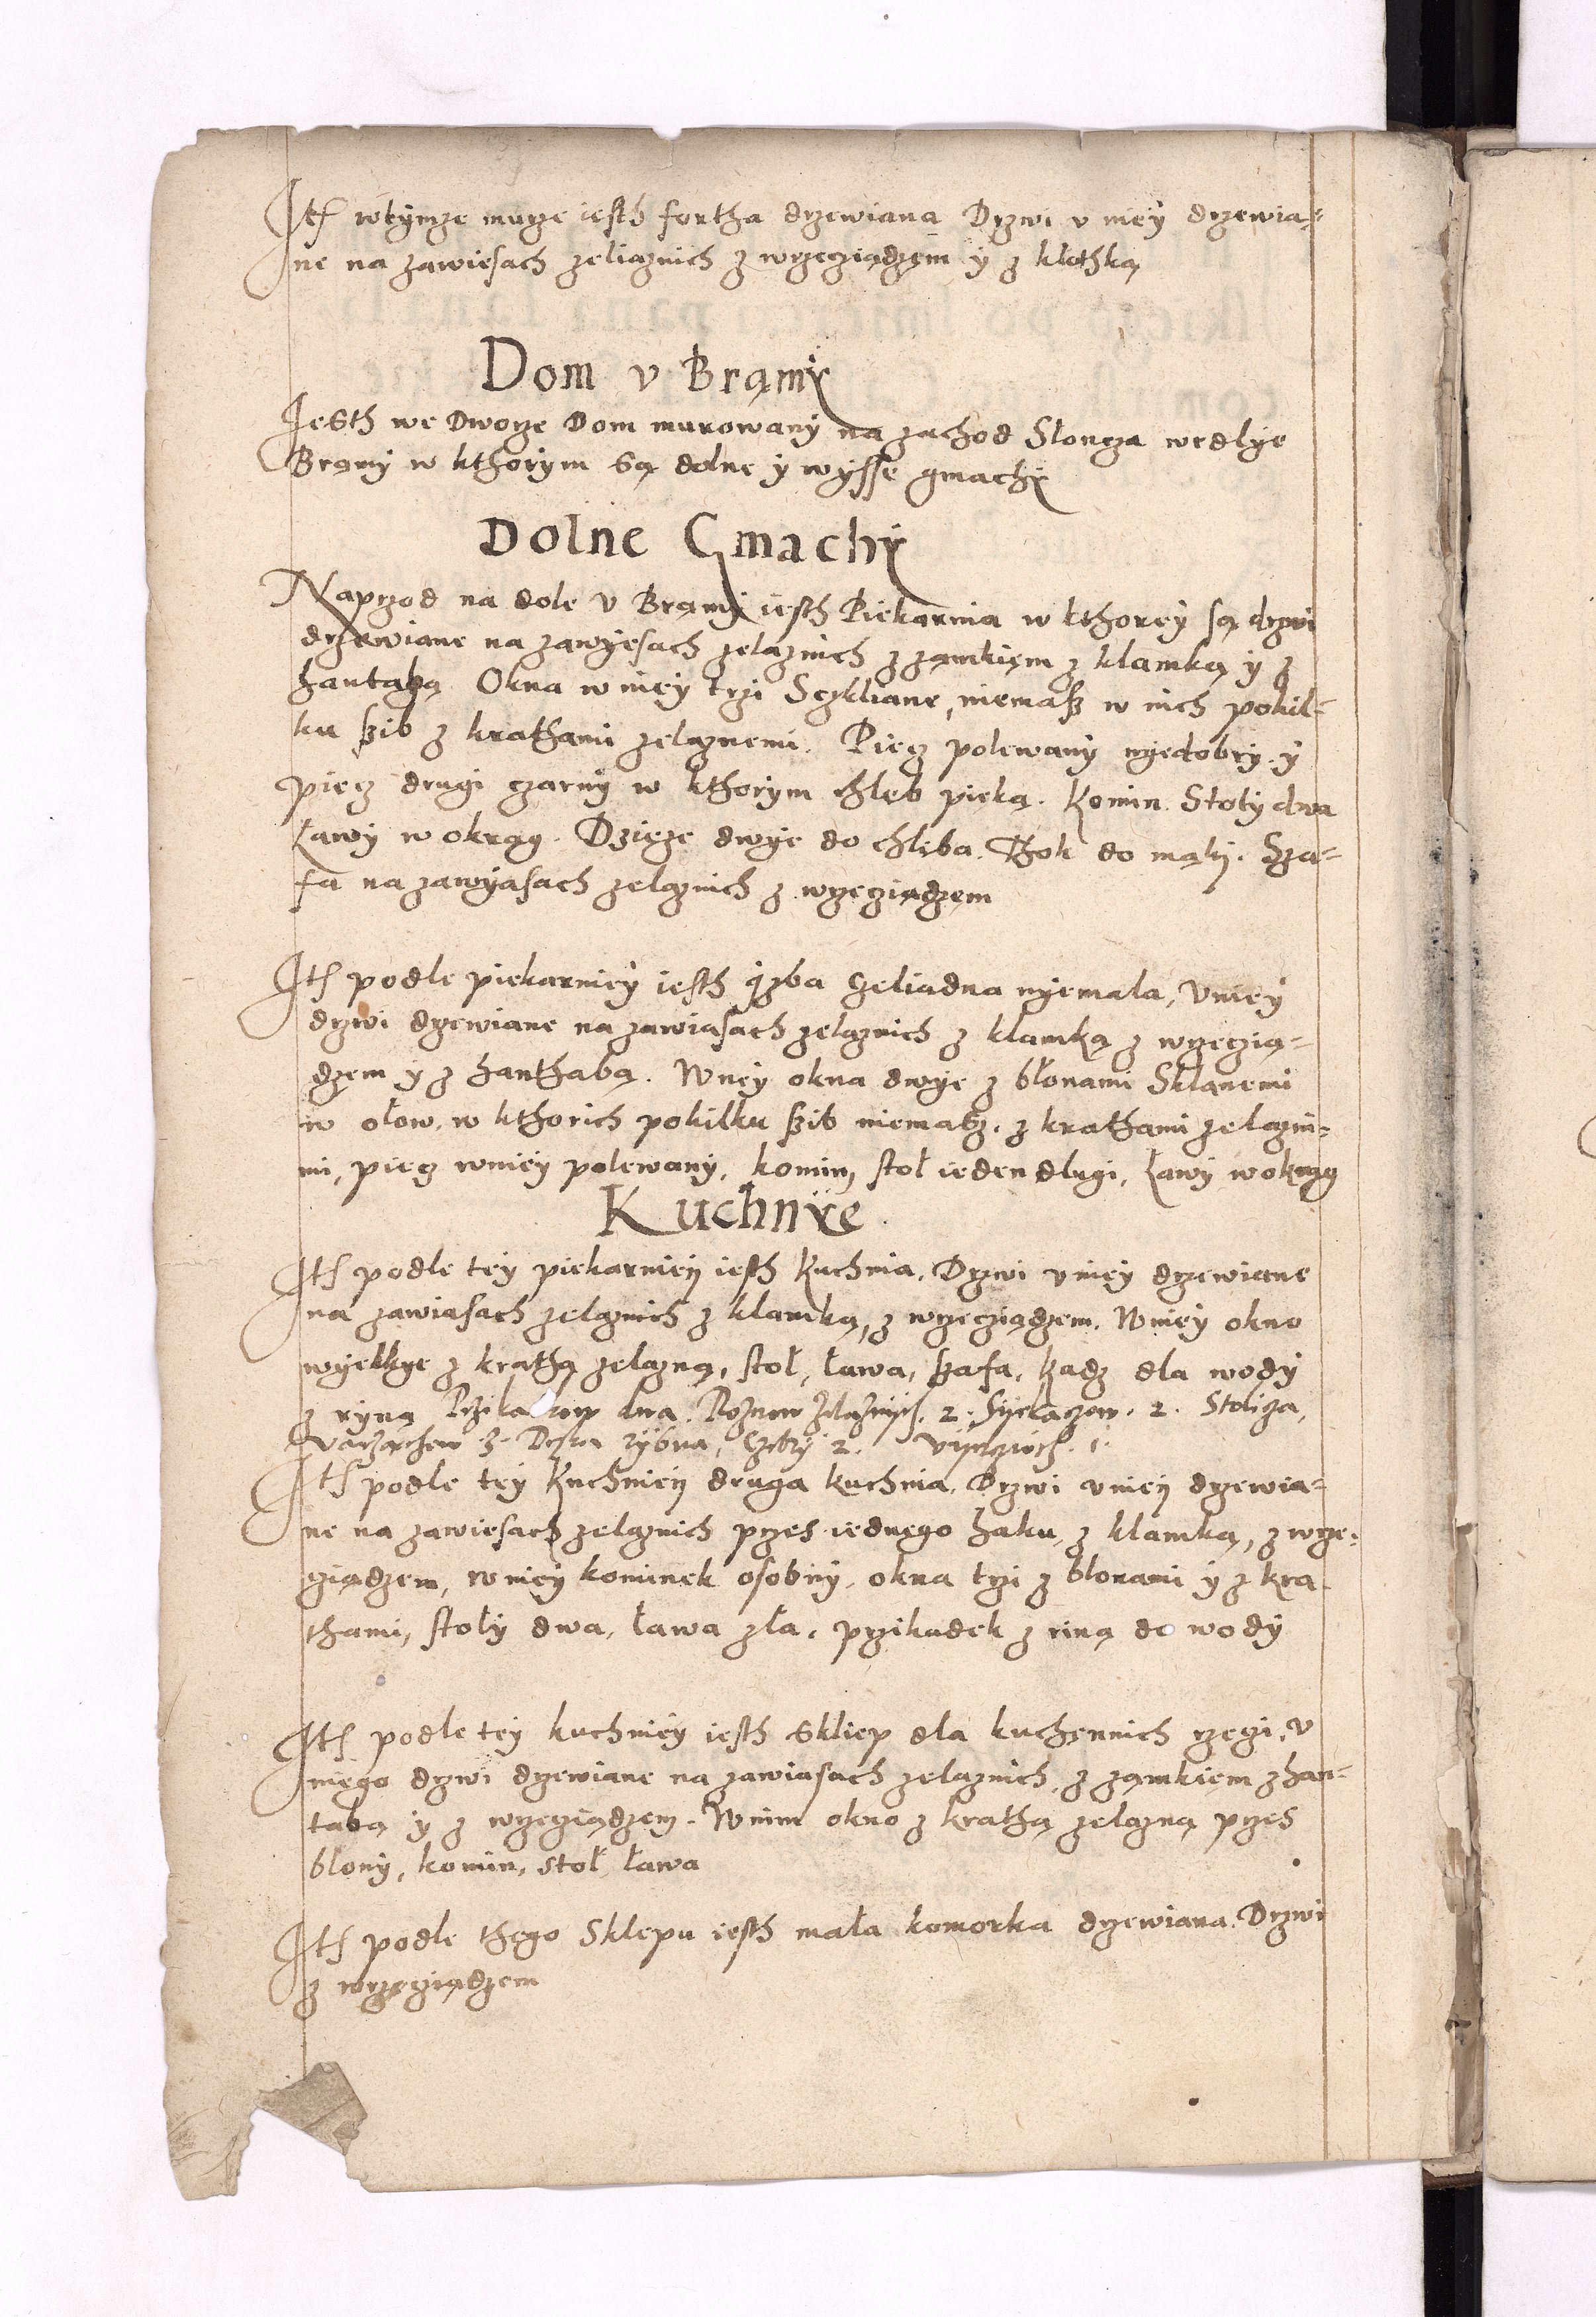 Ite wtymze murze iesth fortha drzewiana Drzwi v niey drzewia=
ne na zawiesach zeliaznich z wrzecziądzem y z klothką
Dom v Bramy
Iesth we Dworze Dom murowany na zachod Sloncza wedlye
Bramy w kthorym są dolne y wysse gmachy
Dolne Gmachy
Naprzod na dole v Bramy iesth Piekarnia w kthorey są drzwi
drzewiane na zawyesach zelaznich z zamkięm z klamką y z
hantabą Okna w niey trzi Sczkliane, niemasz w nich pokil=
ku szib z krathami zelaznemi. Piecz polewany nyedobry. y
piecz drugi czarny w kthorym chleb pieką. Komin. Stoly dwa
Ławy w okrąg. Dzieze dwye do chleba. Rok do mąki. Sza=
fa na zawyasach zelaznich z wrzecziądzem
Ite podle piekarniey iesth yzba czeliadna nyemala, Vniey
drzwi drzewiane na zawiasach zelaznich z klamką z wrzeczią=
dzem y z hanthabą. Wney okna dwye z błonami Sklanemi
w ołow, w kthorich pokilku szib niemasz. z krathami zelazni=
mi, piecz wniey polewany, komin, stoł ieden dlugi, Ławy wokrąg
Kuchnye
Ite podle tey piekarniey iesth Kuchnia. Drzwi vniey drzewiane
na zawiasach zelaznich z klamką, z wrzecziądzem. Wniey okno
wyelkye z krathą zelazną, stoł, ława, szafa, kadz dla wody
z ryną dwa. Roznow zelaznych. 2. Syekaczow. 2. Stolicza,
Warzachew 3. Deska rybna, Czebry 2. 1.
Ite podle tey Kuchniey druga kuchnia. Drzwi vniey drzewia=
ne na zawiesach zelaznich przes iednego haku, z klamką, z wrze=
cziądzem, w niey kominek osobny, okna trzi z blonami y z kra
thami, stoły dwa, ława zła, przikadek z riną do wody
Ite podle tey kuchniey iesth Skliep dla kuchennich rzeczi, v
niego drzwi drzewiane na zawiasach zelaznich, z zamkiem z han=
tabą y z wrzecziądzem. Wnim okno z krathą zelazną przes
błony, komin, stoł ława
Ite podle thego Sklepu iesth mała komorka drzewiana. Drzwi
z wrzecziądzem